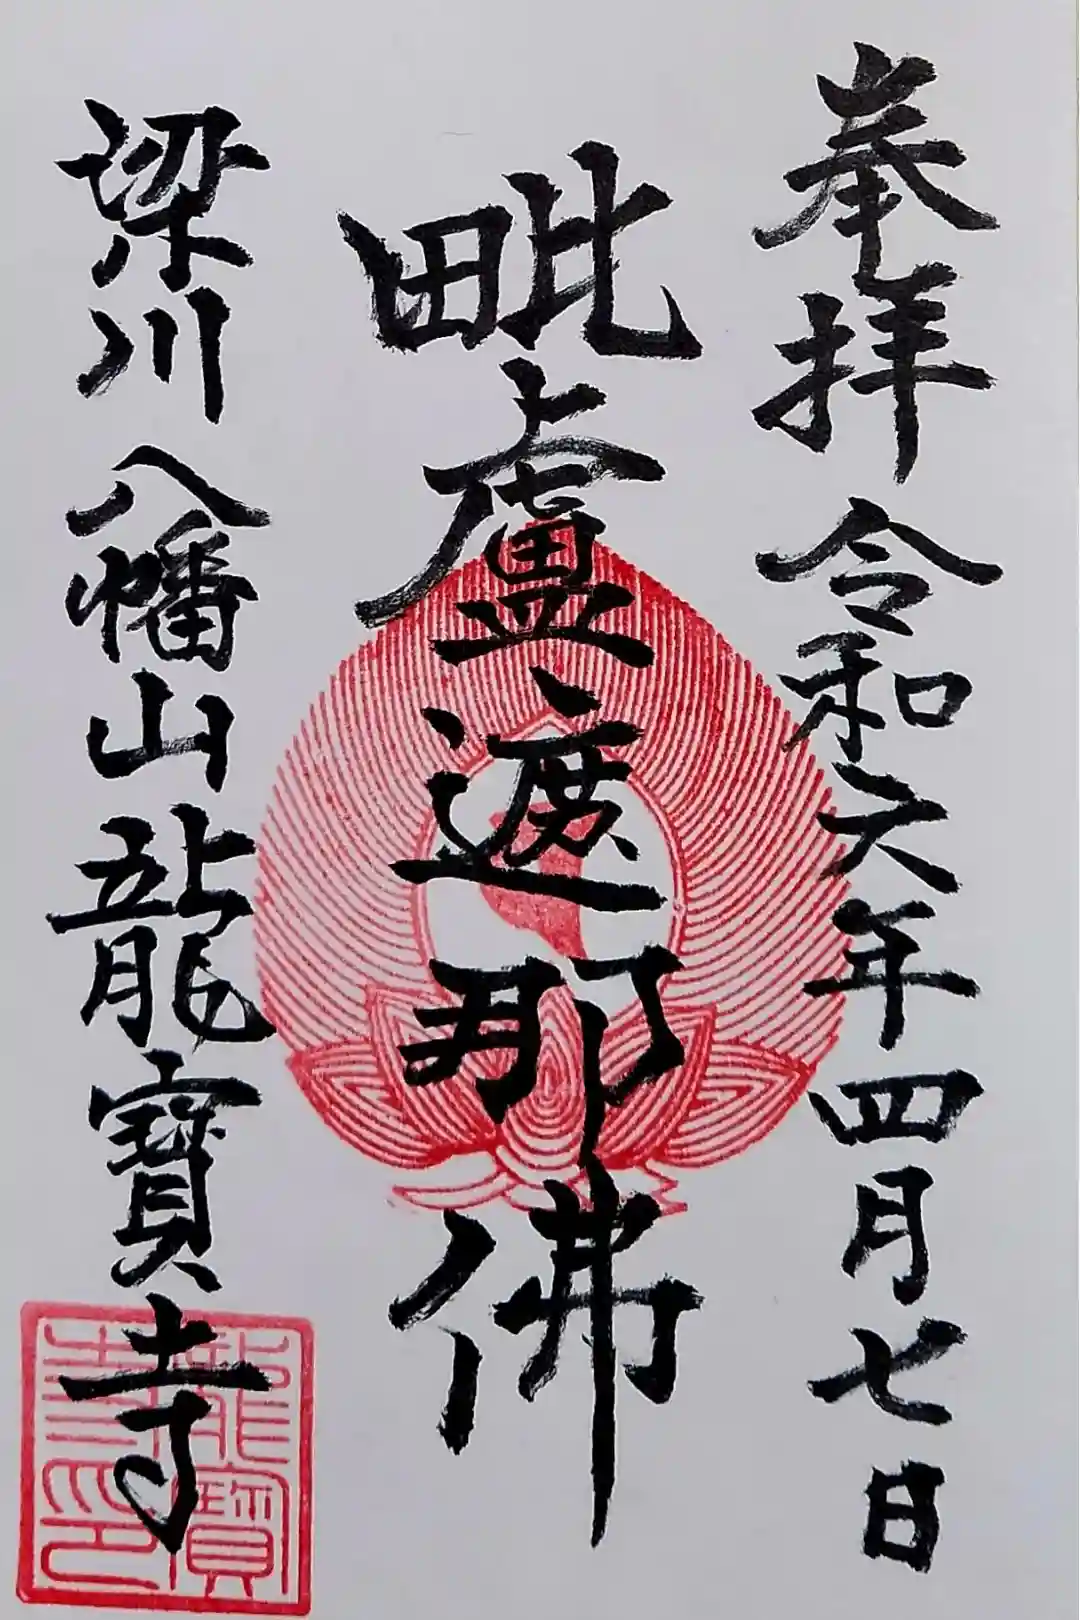 奉拝 令和六年四月七日
毗盧遮那佛
梁川 八幡山龍寶寺
龍寶
寺印